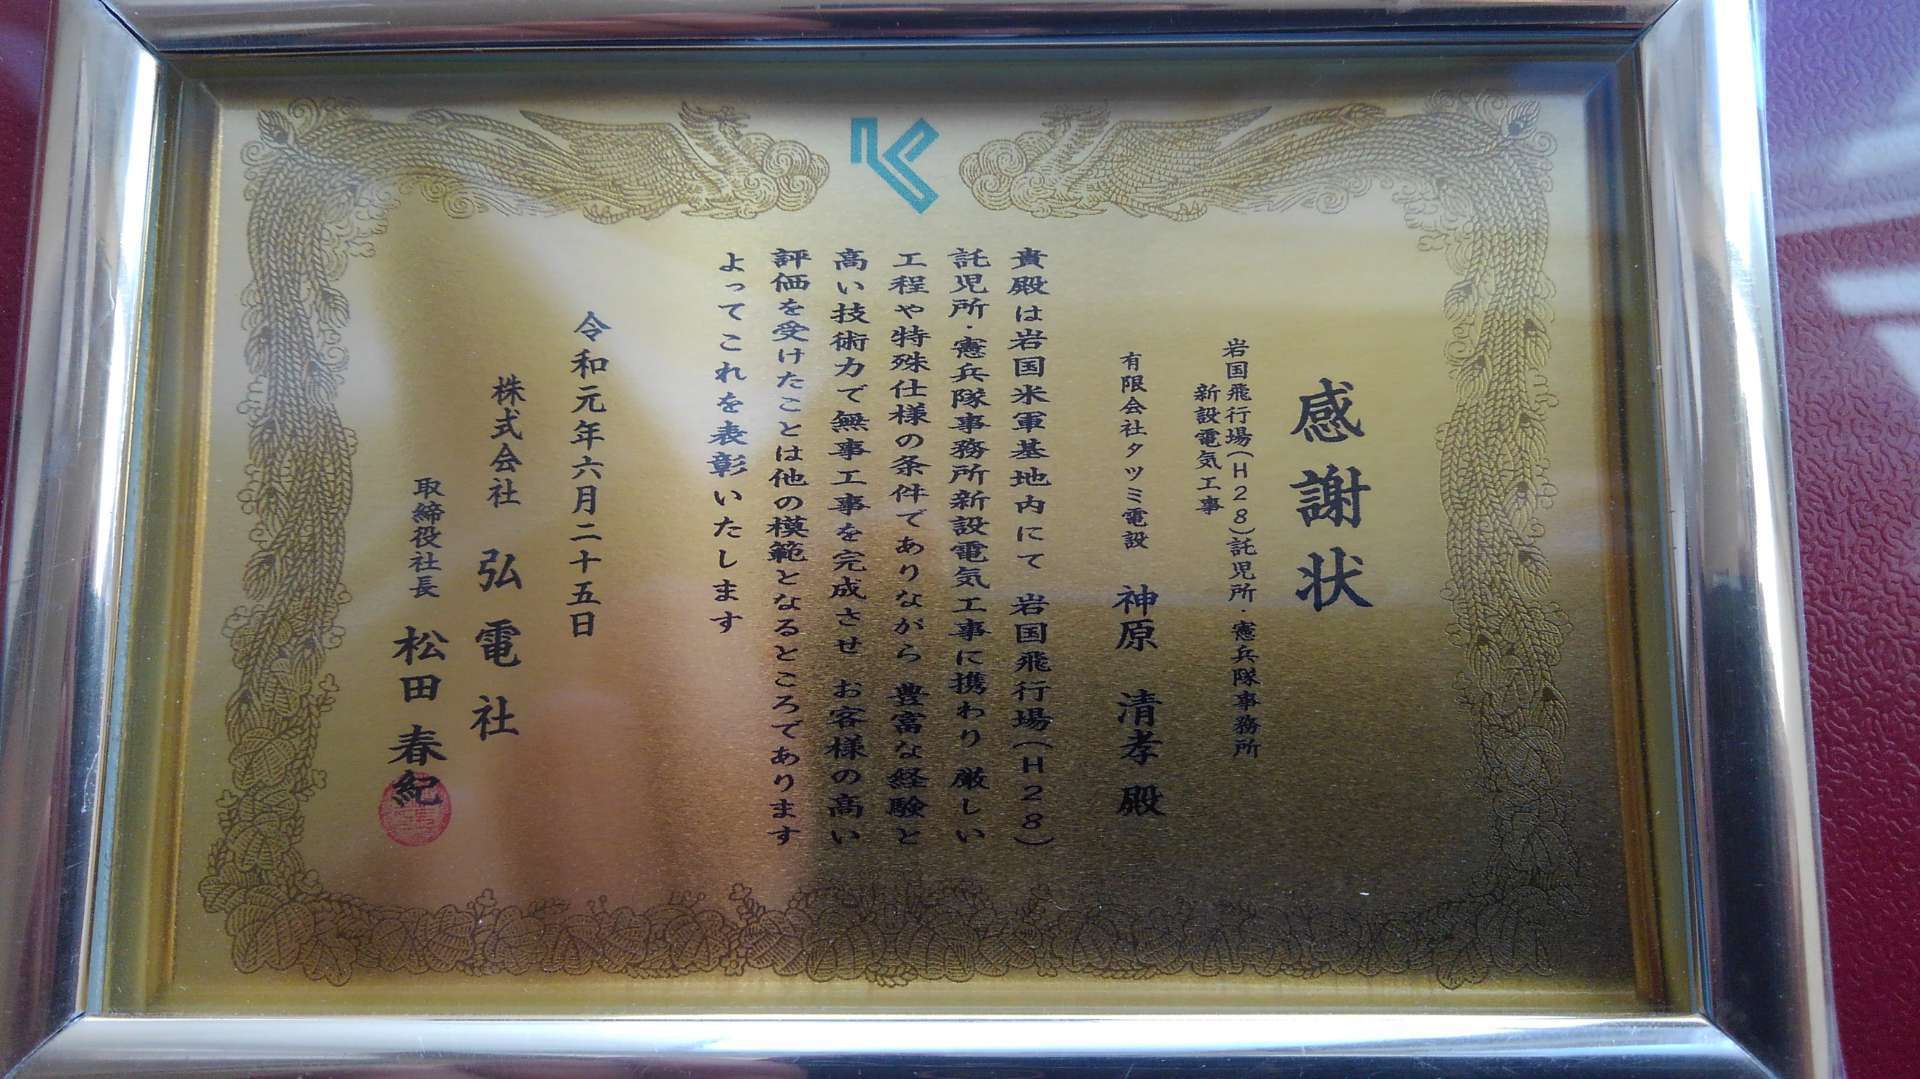 感謝状
岩国飛行場(H28)託児所・憲兵隊事務所
新設電気工事
有限会社タツミ電設 神原 清孝 殿
貴殿は岩国米軍基地内にて 岩国飛行場(H28)
託児所・憲兵隊事務所新設電気工事に携わり 厳しい
工程や特殊仕様の条件でありながら 豊富な経験と
高い技術力で無事工事を完成させ お客様の高い
評価を受けたことは他の模範となるところであります
よってこれを表彰いたします
令和元年六月二十五日
株式会社 弘電社
取締役社長 松田 春紀